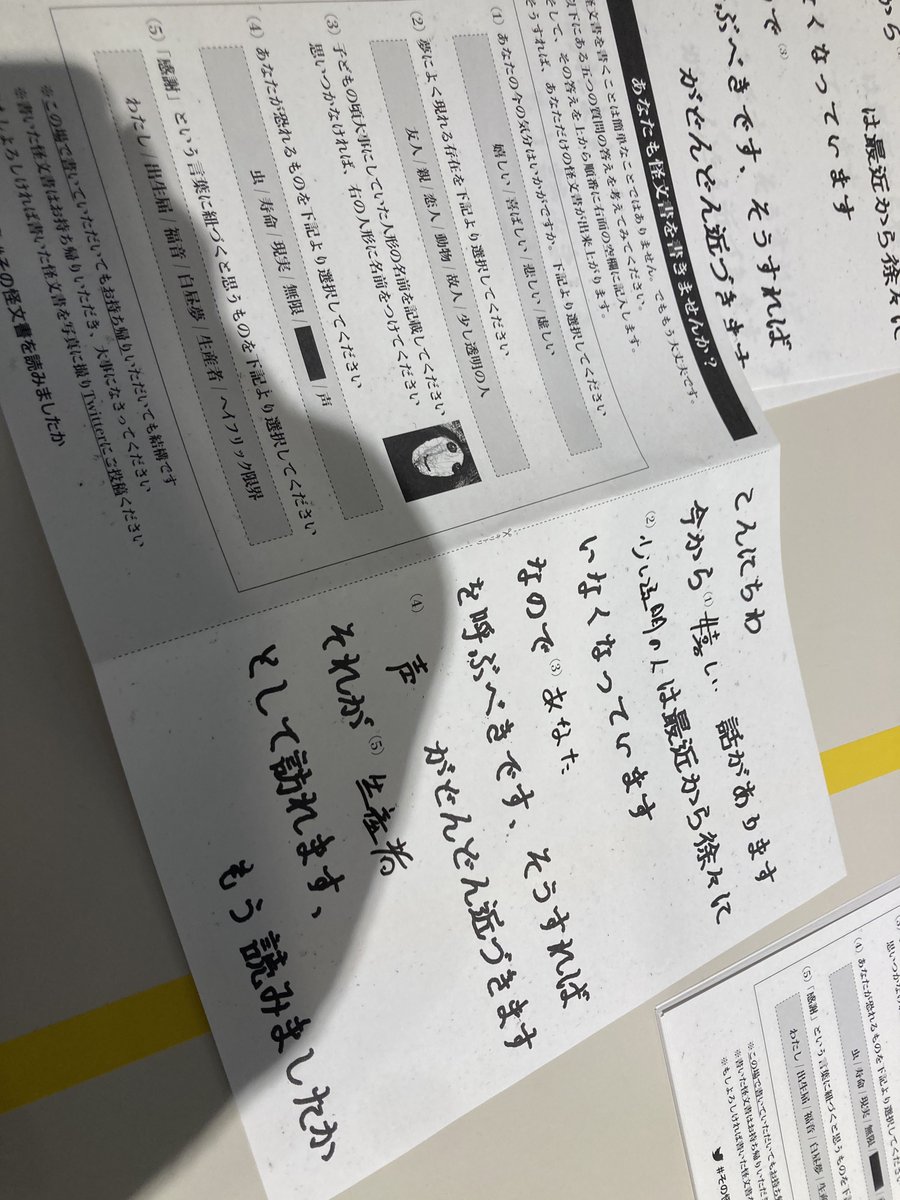 は最近から徐々に
くなっています
ぶべきです、そうすれば
がどんどん近づきます
あなたも怪文書を書きませんか?
怪文書を書くことは簡単なことではありません。でももう大丈夫です。
以下にある五つの質問の答えを考えてみてください。
そして、その答えを上から順番に右面の空欄に記入します。
そうすれば、あなただけの怪文書が出来上がります。
(1) あなたの今の気分はいかがですか。下記より選択してください
嬉しい / 喜ばしい / 悲しい / 虚しい
(2) 夢によく現れる存在を下記より選択してください
友人 / 親 / 恋人 / 動物 / 故人 / 少し透明の人
(3) 子どもの頃大事にしていた人形の名前を記載してください
思いつかなければ、右の人形に名前をつけてください
(4) あなたが恐れるものを下記より選択してください
虫 / 寿命 / 現実 / 無限 / / 声
(5) 「感謝」という言葉に紐づくと思うものを下記より選択してください
わたし / 出生届 / 福音 / 白昼夢 / 生産者 / ヘイフリック限界
※この場で書いていただいてもお持ち帰りいただいても結構です
※書いた怪文書はお持ち帰りいただき、大事になさってください
※もしよろしければ書いた怪文書を写真に撮りTwitterにご投稿ください
#その怪文書を読みましたか
こんにちわ
今から (1) 嬉しい 話があります
(2) 少し透明の人は最近から徐々に
いなくなっています
なので (3) あなた
を呼ぶべきです、そうすれば
(4) 声 がどんどん近づきます
それが (5) 生産者
として訪れます、
もう読みましたか
(4) あなたが恐れるものを下記より選択してくだ
虫 / 寿命 / 現実 / 無限
(5) 「感謝」という言葉に紐づくと思うものを下
わたし / 出生届 / 福音 / 白昼夢 / 生
※この場で書いていただいてもお持ち帰
※書いた怪文書はお持ち帰りいただき、
※もしよろしければ書いた怪文書を写
#その怪